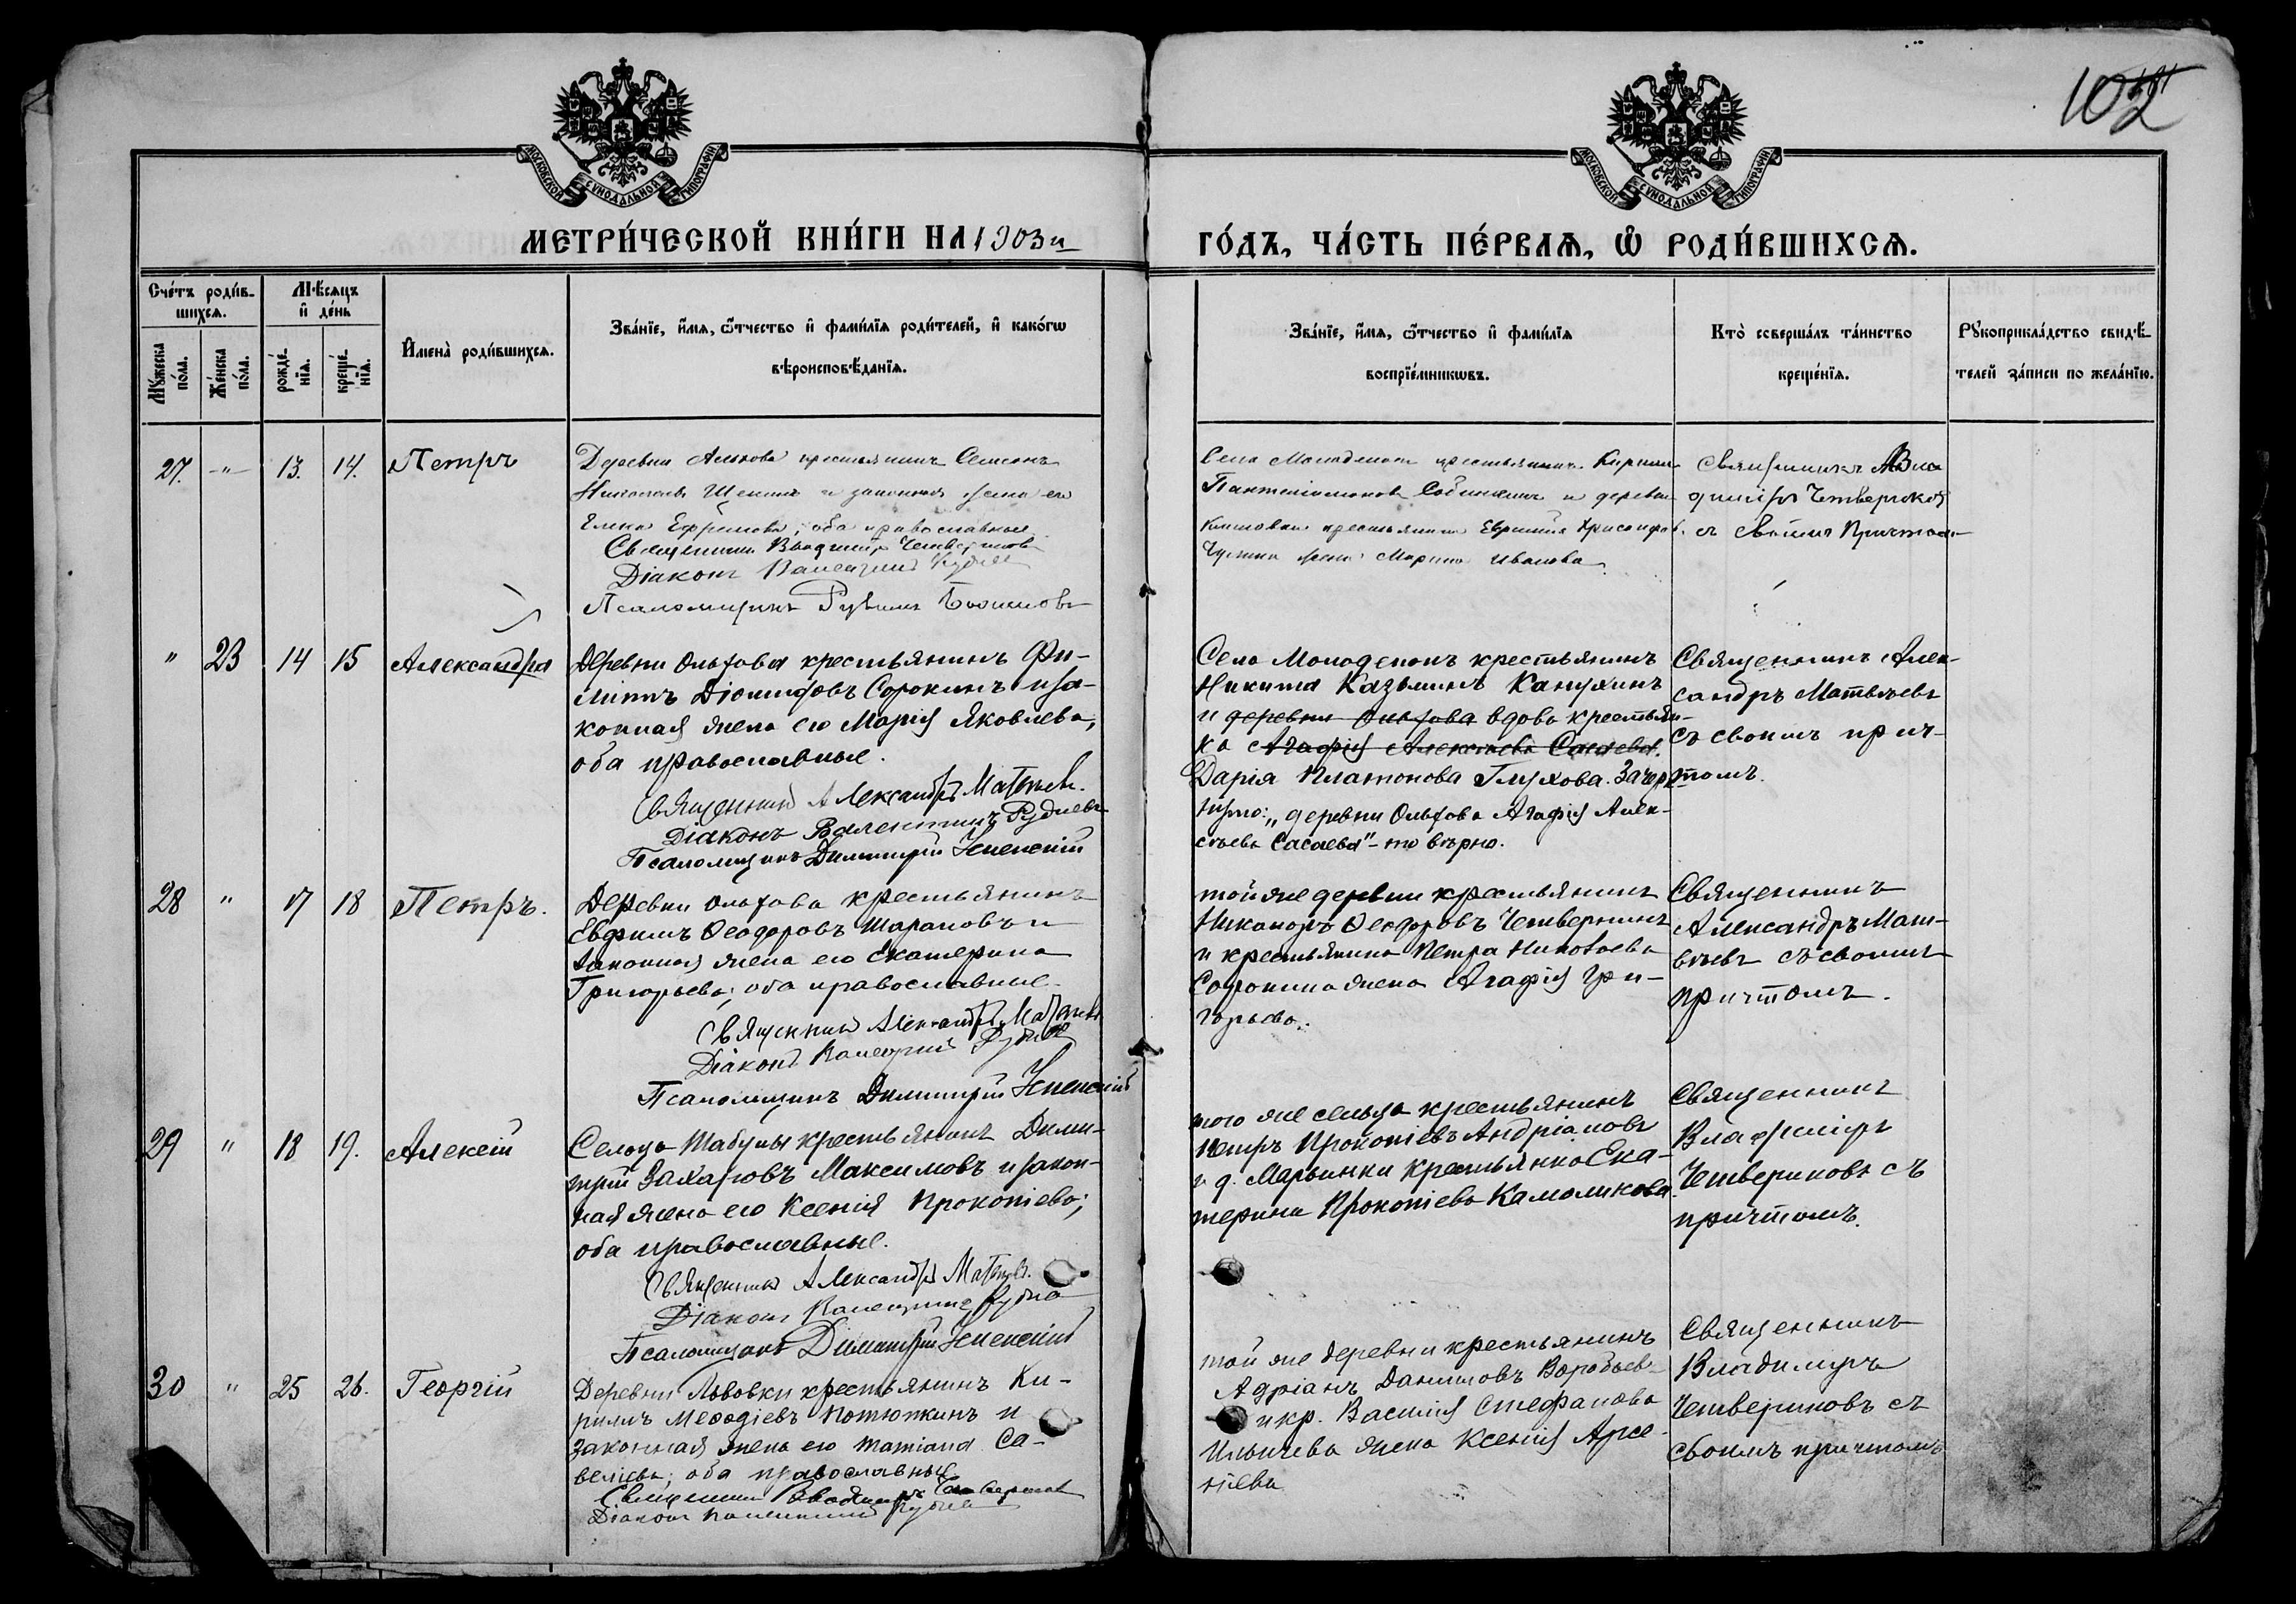 102
МОСКОВСКОЙ СУНОДАЛЬНОЙ ТИПОГРАФІИ
МОСКОВСКОЙ СУНОДАЛЬНОЙ ТИПОГРАФІИ
МЕТРИ́ЧЕСКОЙ КНИ́ГИ НА 1903й
ГО́ДЪ, ЧА́СТЬ ПЕ́РВАѦ, Ѽ РОДИ́ВШИХСѦ.
Сче́тъ роди́в-
шихсѧ.
Мꙋжеска по́ла.
Же́нска по́ла.
Мѣсѧцъ и де́нь
рожде́-
нїѧ.
креще́-
нїѧ.
И̓мена̀ роди́вшихсѧ.
Зва́нїе, и́мѧ, ѻ҆́тчество и фами́лїѧ роди́телей, и како́гѡ
вѣроисповѣданїѧ.
Зва́нїе, и́мѧ, ѻ҆́тчество и фами́лїѧ
воспрїе́мникѡвъ.
Кто̀ соверша́лъ та́инство
креще́нїѧ.
Рꙋкоприкла́дство свидѣ-
телей за́писи по жела́нїю.
27. -"- 13. 14. Петръ
Деревни крестьянинъ Семенъ
и законная жена его
Елена Ефремова; оба православные.
Священникъ Владиміръ Четвериковъ
Діаконъ Валентинъ Руднев
Псаломщикъ
Села Молоденокъ крестьянинъ
и деревни
крестьянина
жена Марина Иванова.
Священникъ
Четвериковъ
съ своимъ Причтомъ
" 23 14 15 Александра
Деревни Ольхова крестьянинъ Фи-
липпъ Діомидовъ Сорокинъ и за-
конная жена его Марія Яковлева;
оба православные.
Священникъ Александръ Матвѣевъ.
Діаконъ Валентинъ Рудневъ
Псаломщикъ Димитрій Успенскій
Села Молоденокъ крестьянинъ
Никита Казьминъ Канухинъ
и деревни Ольхова вдова крестьян-
ка Агафія Алексѣева Сасаева.
Дарія Платонова Глухова. Зачерк-
нуто: „деревни Ольхова Агафія Алек-
сѣева Сасаева" - то вѣрно.
Священникъ Алек-
сандръ Матвѣевъ
съ своимъ прич-
томъ.
28 " 17 18 Петръ.
Деревни Ольхова крестьянинъ
Евфимъ Ѳеодоровъ Шараповъ и
законная жена его Екатерина
Григорьева; оба православные.
Священникъ Александръ Матвѣевъ
Діаконъ Валентинъ Рудневъ
Псаломщикъ Димитрій Успенскій
той же деревни крестьянинъ
Никаноръ Ѳеодоровъ Четверкинъ
и крестьянина Петра Николаева
Сорокина жена Агафія Гри-
горьева.
Священникъ
Александръ Мат-
вѣевъ съ своимъ
причтомъ.
29 " 18 19. Алексій
Сельца Табулы крестьянинъ Дими-
трій Захаровъ Максимовъ и закон-
ная жена его Ксенія Прокопіева;
оба православные.
Священникъ Александръ Матвѣевъ.
Діаконъ Валентинъ Руднев
Псаломщикъ Димитрій Успенскій
того же сельца крестьянинъ
Петръ Прокопіевъ Андріановъ
и д. Марьинки крестьянка Ека-
терина Прокопіева Камоликова
Священникъ
Владиміръ
Четвериковъ съ
причтомъ.
30 " 25 26. Георгій
Деревни Львовки крестьянинъ Ки-
риллъ Меѳодіевъ Потюпкинъ и
законная жена его Татіана Са-
веліева; оба православные
Священникъ Владиміръ Четвериков
Діаконъ Валентинъ Руднев
той же деревни крестьянинъ
Адріанъ Даниловъ Воробьев
и кр. Василія Стефанова
Ильичева жена Ксенія Арсе-
ніева
Священникъ
Владимиръ
Четвериковъ съ
своимъ причтомъ